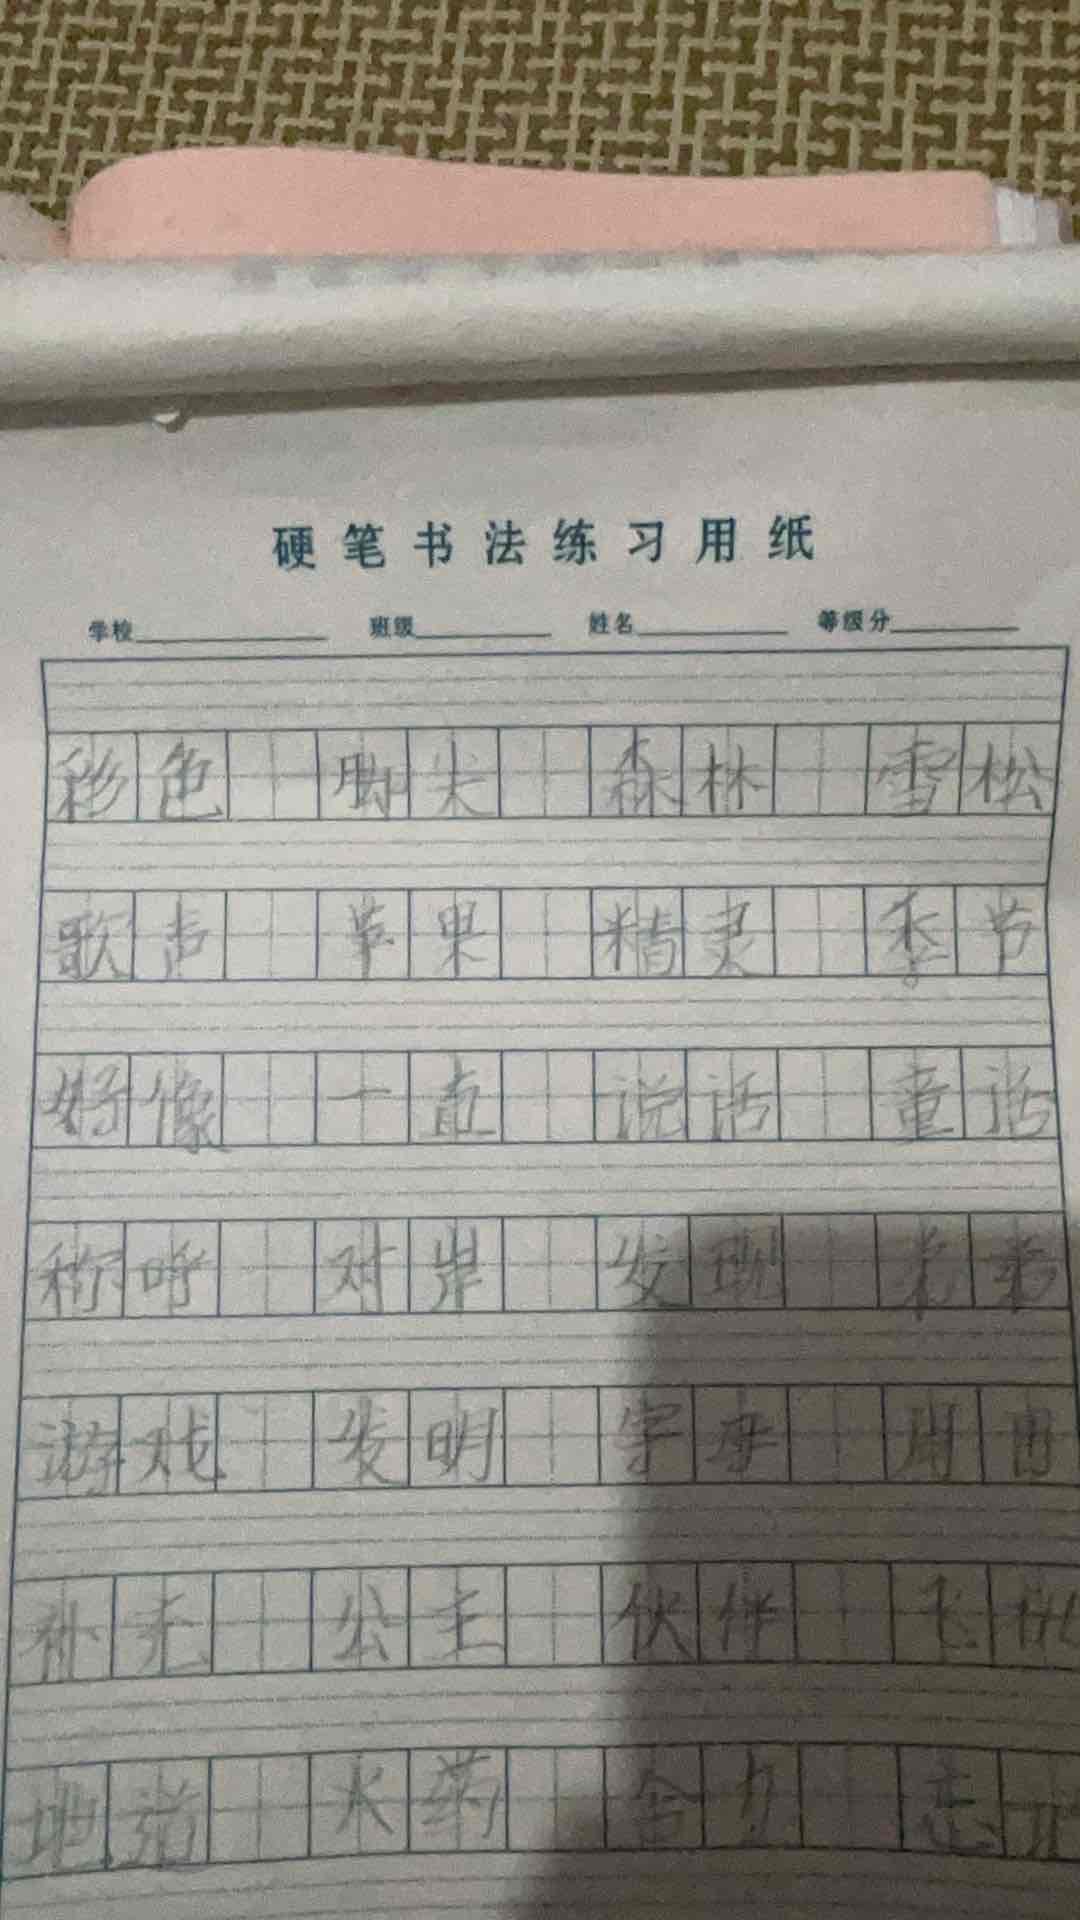 硬笔书法练习用纸
学校 班级 姓名 等级分
彩色 脚尖 森林 雪松
歌声 苹果 精灵 季节
好像 一直 说话 童话
称呼 对岸 发现
游戏 发明 字母
补充 公主 伙伴 飞机
地道 火药 合力